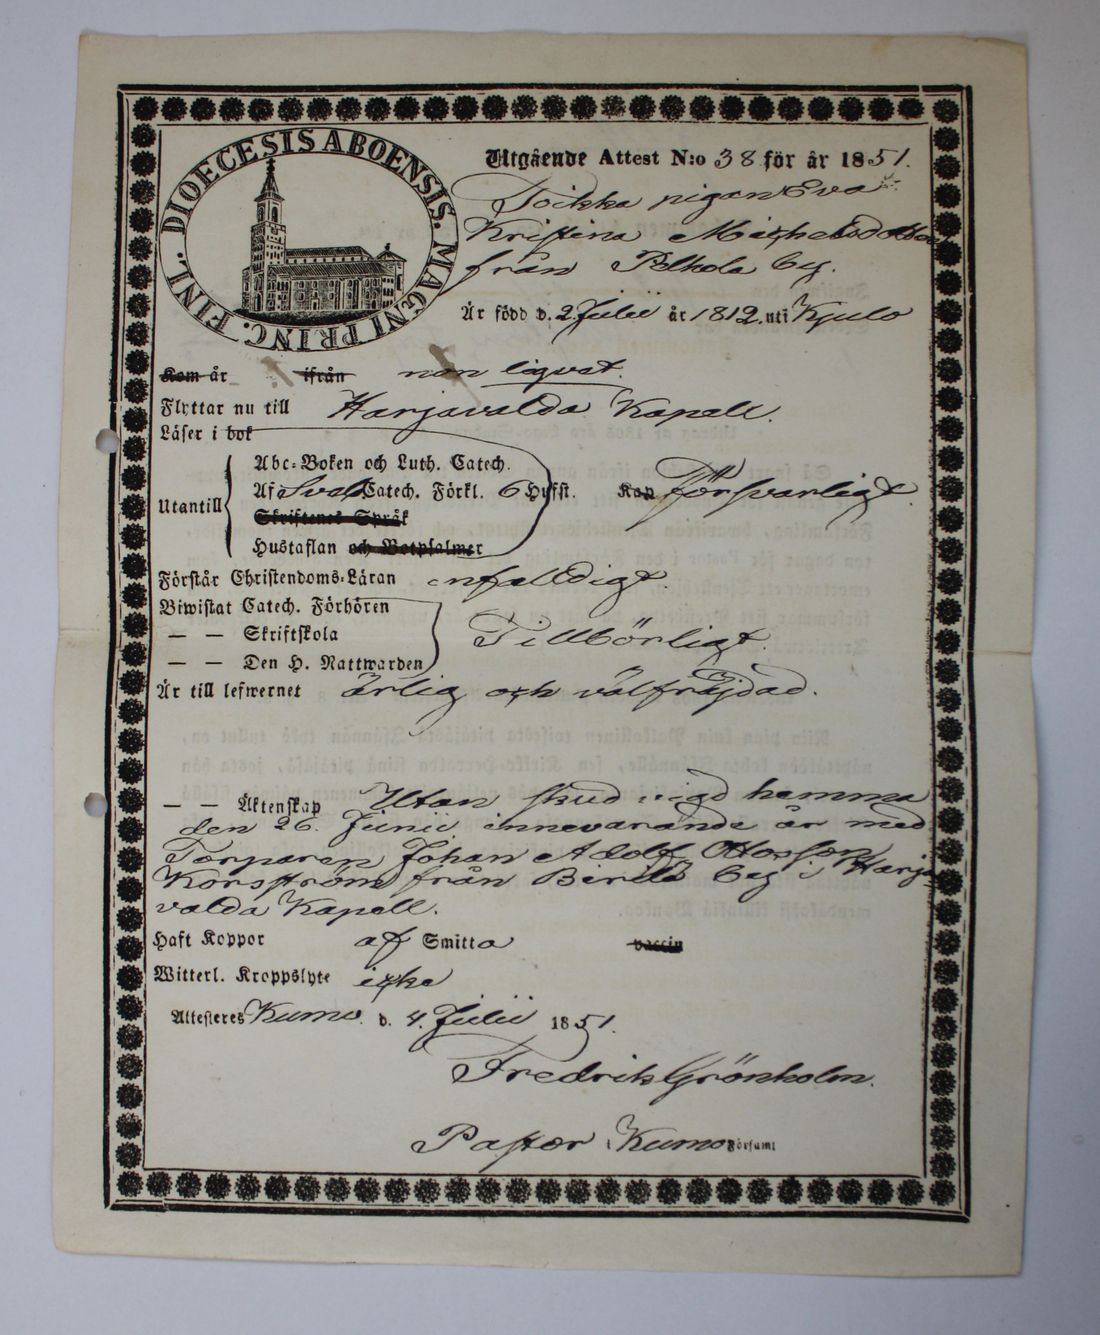 DIOECESIS ABOENSIS. MAGNI PRINC. FINL.
Utgående Attest N:o 38 för år 1851.
Toikka pigan Eva
Kristina
från Pelhola by.
Är född d. 2 Julii år 1812 uti Kjulo
Kom år ifrån
Flyttar nu till Harjavalda Kapell.
Läser i bok
Abc-Boken och Luth. Catech.
Utantill Af Sveb Catech. Förkl. 6 Hufst. Kap Försvarligt
Skriftenes Språk
Hustaflan och Botpsalmer
Förstår Christendoms-Läran enfalldigt
Biwistat Catech. Förhören
— — Skriftskola Tillbörligt.
— — Den H. Nattwarden
Är till lefwernet ärlig och välfräjdad.
— — Äktenskap Utan skud hemma
den 26. Junii innevarande år med
Torparen Johan Adolf Ottosson
Korsström från by i Harja-
valda Kapell.
Haft Koppor af Smitta vaccin
Witterl. Kroppslyte icke
Attesteres Kumo. d. 4. Julii 1851.
Fredrik Grönholm.
Pastor i Kumo Församl